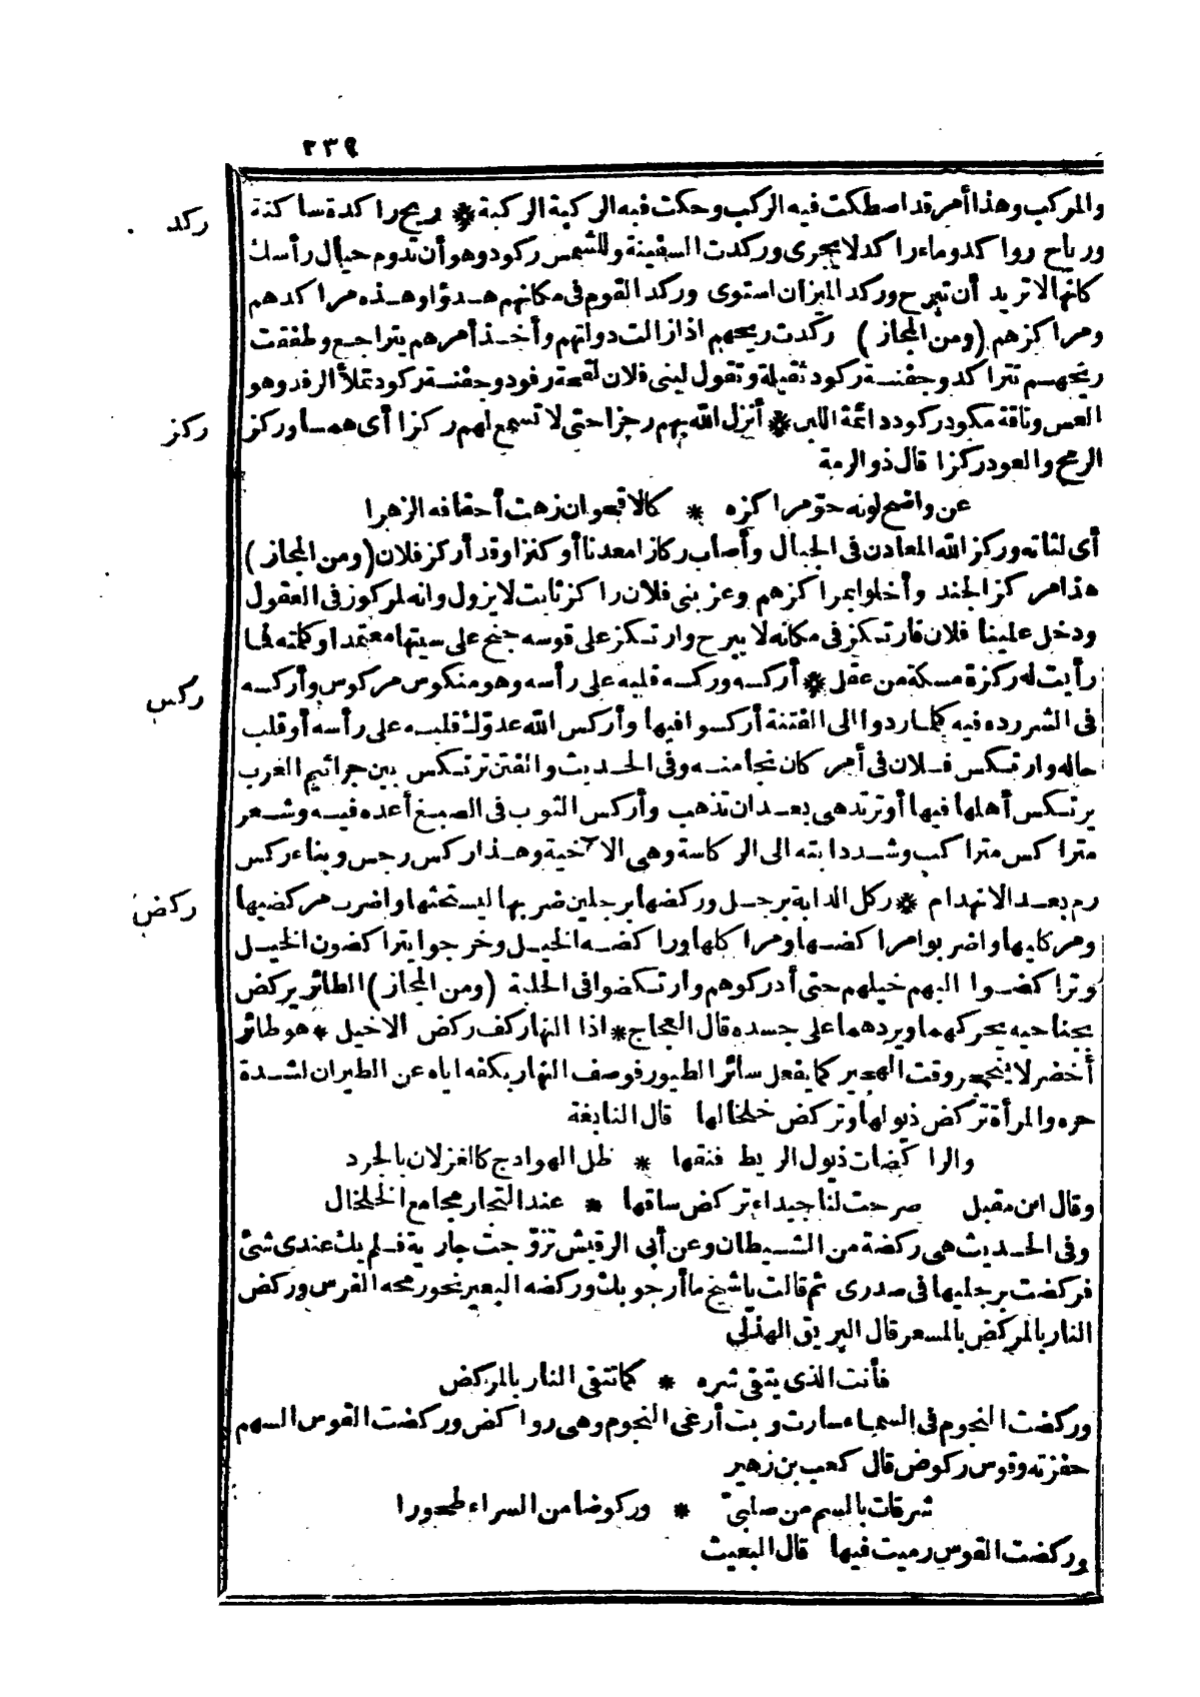 ٢٣٩
والمركب وهذا أمر قد اصطكت فيه الركب وحكت فيه الركبة الركبة * ريح راكدة ساكنة
ركد
ورياح رواكد وماء راكد لا يجرى وركدت السفينة وللشمس ركود وهو أن تدوم حيال رأسك
كأنها لا تريد أن تبرح وركد الميزان استوى وركد القوم فى مكانهم هدؤا وهذه مراكدهم
ومراكزهم (ومن المجاز) ركدت ريحهم اذا زالت دولتهم وأخذ أمرهم يتراجع وطفقت
ريحهم تتراكد وجفنة ركود ثقيلة وتقول لبنى فلان لقحة رفود وجفنة ركود تملأ الرفد وهو
العس وناقة مكود ركود دائمة اللبن * أنزل الله بهم رجزا حتى لا تسمع لهم ركزا أى همسا وركز
ركز
الرمح والعود ركزا قال ذو الرمة
عن واضح لونه حوّ مراكزه * كالاقحوان زهت أحقافه الزهرا
أى لثاته وركز الله المعادن فى الجبال وأصاب ركازا معدنا أو كنزا وقد أركز فلان (ومن المجاز)
هذا مركز الجند وأخلوا بمراكزهم وعز بنى فلان راكز ثابت لا يزول وانه لمركوز فى العقول
ودخل علينا فلان فارتكز فى مكانه لا يبرح وارتكز على قوسه جنح على سيتها معتمدا وكلمته فما
رأيت له ركزة مسكة من عقل * أركسه وركسه قلبه على رأسه وهو منكوس مركوس وأركسه
ركس
فى الشر رده فيه كلما ردوا الى الفتنة أركسوا فيها وأركس الله عدوّك قلبه على رأسه أو قلب
حاله وارتكس فلان فى أمر كان نجا منه وفى الحديث والفتن ترتكس بين جراثيم العرب
يرتكس أهلها فيها أو ترتد هى بعد ان تذهب وأركس الثوب فى الصبغ أعده فيه وشعر
متراكس متراكب وشد دابته الى الركاسة وهى الآخية وهذا ركس رجس وبناء ركس
رم بعد الانهدام * ركل الدابة برجل وركضها برجلين ضربها ليستحثها واضرب مركضيها
ركض
ومركليها واضربوا مراكضها ومراكلها وراكضه الخيل وخرجوا يتراكضون الخيل
وتراكضوا اليهم خيلهم حتى أدركوهم وارتكضوا فى الحلبة (ومن المجاز) الطائر يركض
بجناحيه يحركهما ويردهما على جسده قال العجاج * اذا النهار كف ركض الاخيل * هو طائر
أخضر لا ينجحر وقت الهجير كما يفعل سائر الطيور فوصف النهار بكفه اياه عن الطيران لشدة
حره والمرأة تركض ذيولها وتركض خلخالها قال النابغة
والراكضات ذيول الريط فنقها * ظل الهوادج كالغزلان بالجرد
وقال ابن مقبل صرحت لنا جيداء تركض ساقها * عند التجار مجامع الخلخال
وفى الحديث هى ركضة من الشيطان وعن أبى الرقيش تزوّجت جارية فلم يك عندى شئ
فركضت برجليها فى صدرى ثم قالت ياشيخ ما أرجو بك وركضه البعير نحو رمحه الفرس وركض
النار بالمركض بالمسعر قال البريق الهذلى
فأنت الذى يتقى شره * كما تتقى النار بالمركض
وركضت النجوم فى السماء سارت وبت أرعى النجوم وهى رواكض وركضت القوس السهم
حفزته وقوس ركوض قال كعب بن زهير
شرقات بالسم من صلبىّ * وركوضا من السراء طحورا
وركضت القوس رميت فيها قال البعيث